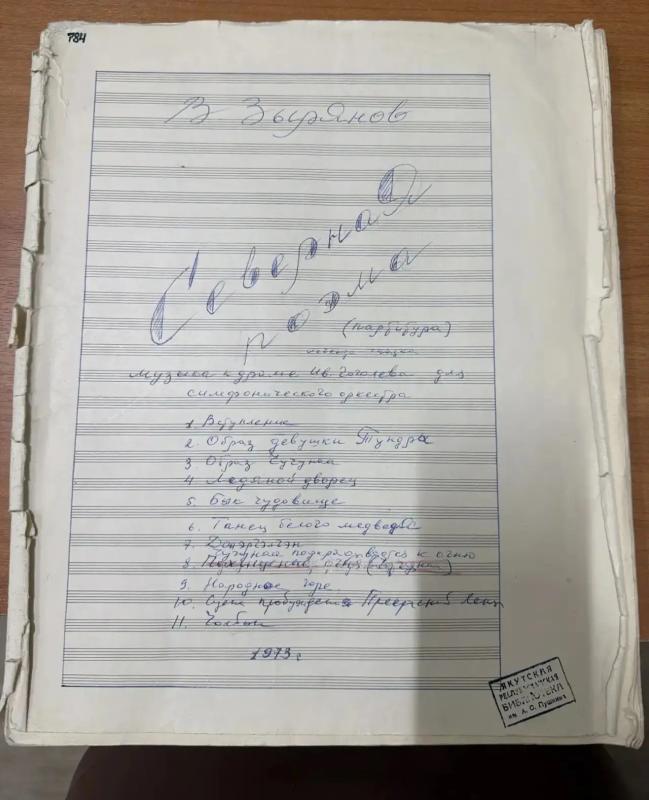 784
В. Зырянов
Северная
поэма
(партитура)
Музыка к драме Ив. Гоголева для
симфонического оркестра
1. Вступление
2. Образ девушки Тундры
3. Образ Чучуны
4 Ледяной дворец
5. Бык чудовище
6. Танец белого медведя
7.
Чучуна подкрадывается к огню
8. Похищение огня (Чучуна)
9. Народное горе.
10. Сцена пробуждения Прекрасной
11. Чолбон
1973 г
ЯКУТСКАЯ
РЕСПУБЛИКАНСКАЯ
БИБЛИОТЕКА
им. А. С. Пушкина